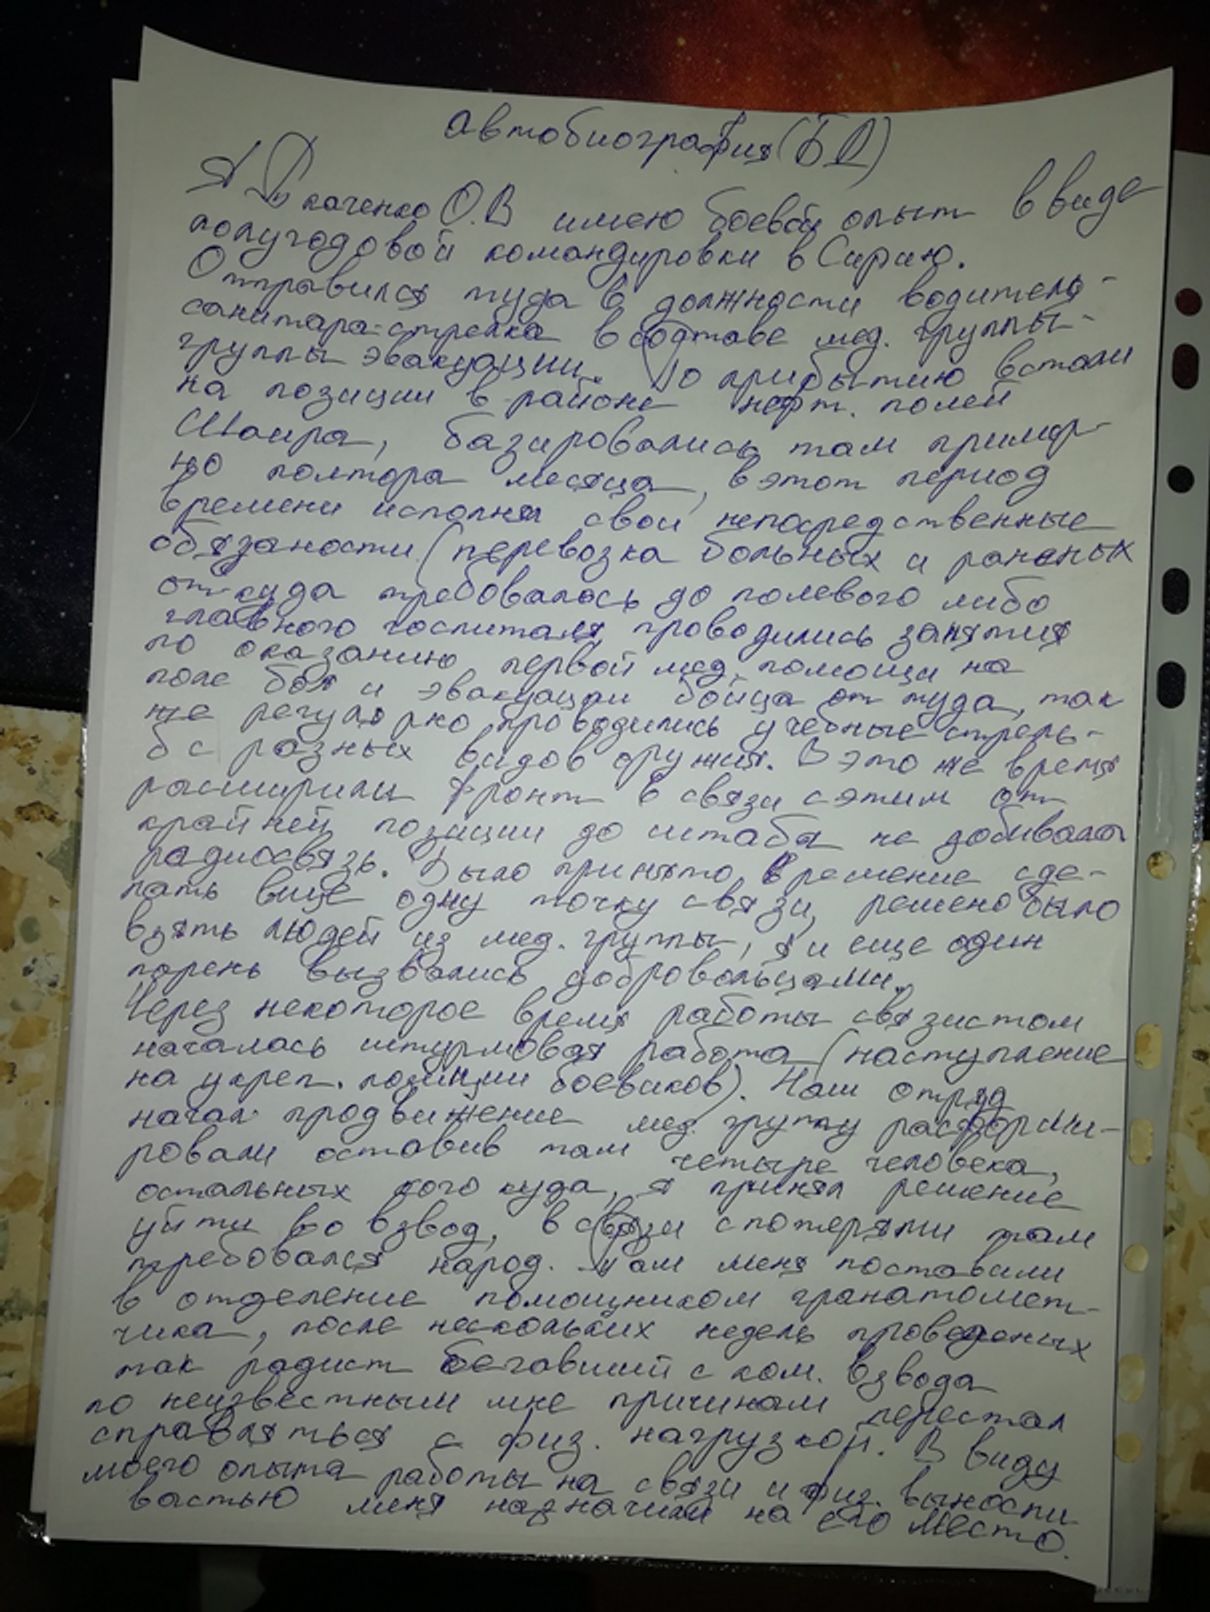 Автобиография (БД)
Я Ткаченко О.В имею боевой опыт в виде
полугодовой командировки в Сирию.
Отправился туда в должности водитель-
санитара-стрелка в составе мед. группы-
группы эвакуации. По прибытию встали
на позиции в районе нефт. полей
Шаира, базировались там пример-
но полтора месяца, в этот период
времени исполнял свои непосредственные
обязаности (перевозка больных и раненых
откуда требовалось до полевого либо
главного госпиталя, проводились занятия
по оказанию первой мед. помощи на
поле боя и эвакуации бойца от туда, так
же регулярно проводились учебные стрель-
бы с разных видов оружия. В это же время
расширили фронт в связи с этим от
крайней позиции до штаба не добивала
радиосвязь. Было принято решение сде-
лать еще одну точку связи, решено было
взять людей из мед. группы, я и еще один
парень вызвались добровольцами.
Через некоторое время работы связистом
началась штурмовая работа (наступление
на укреп. позиции боевиков). Наш отряд
начал продвижение мед. группу расформи-
ровали оставив там четыре человека,
остальных кого куда, я принял решение
уйти во взвод, в связи с потерями там
требовался народ. Там меня поставили
в отделение помощником гранатомет-
чика, после нескольких недель проведеных
там радист бегавший с ком. взвода
по неизвестным мне причинам перестал
справляться с физ. нагрузкой. В виду
моего опыта работы на связи и физ. выносли-
востью меня назначили на его место.